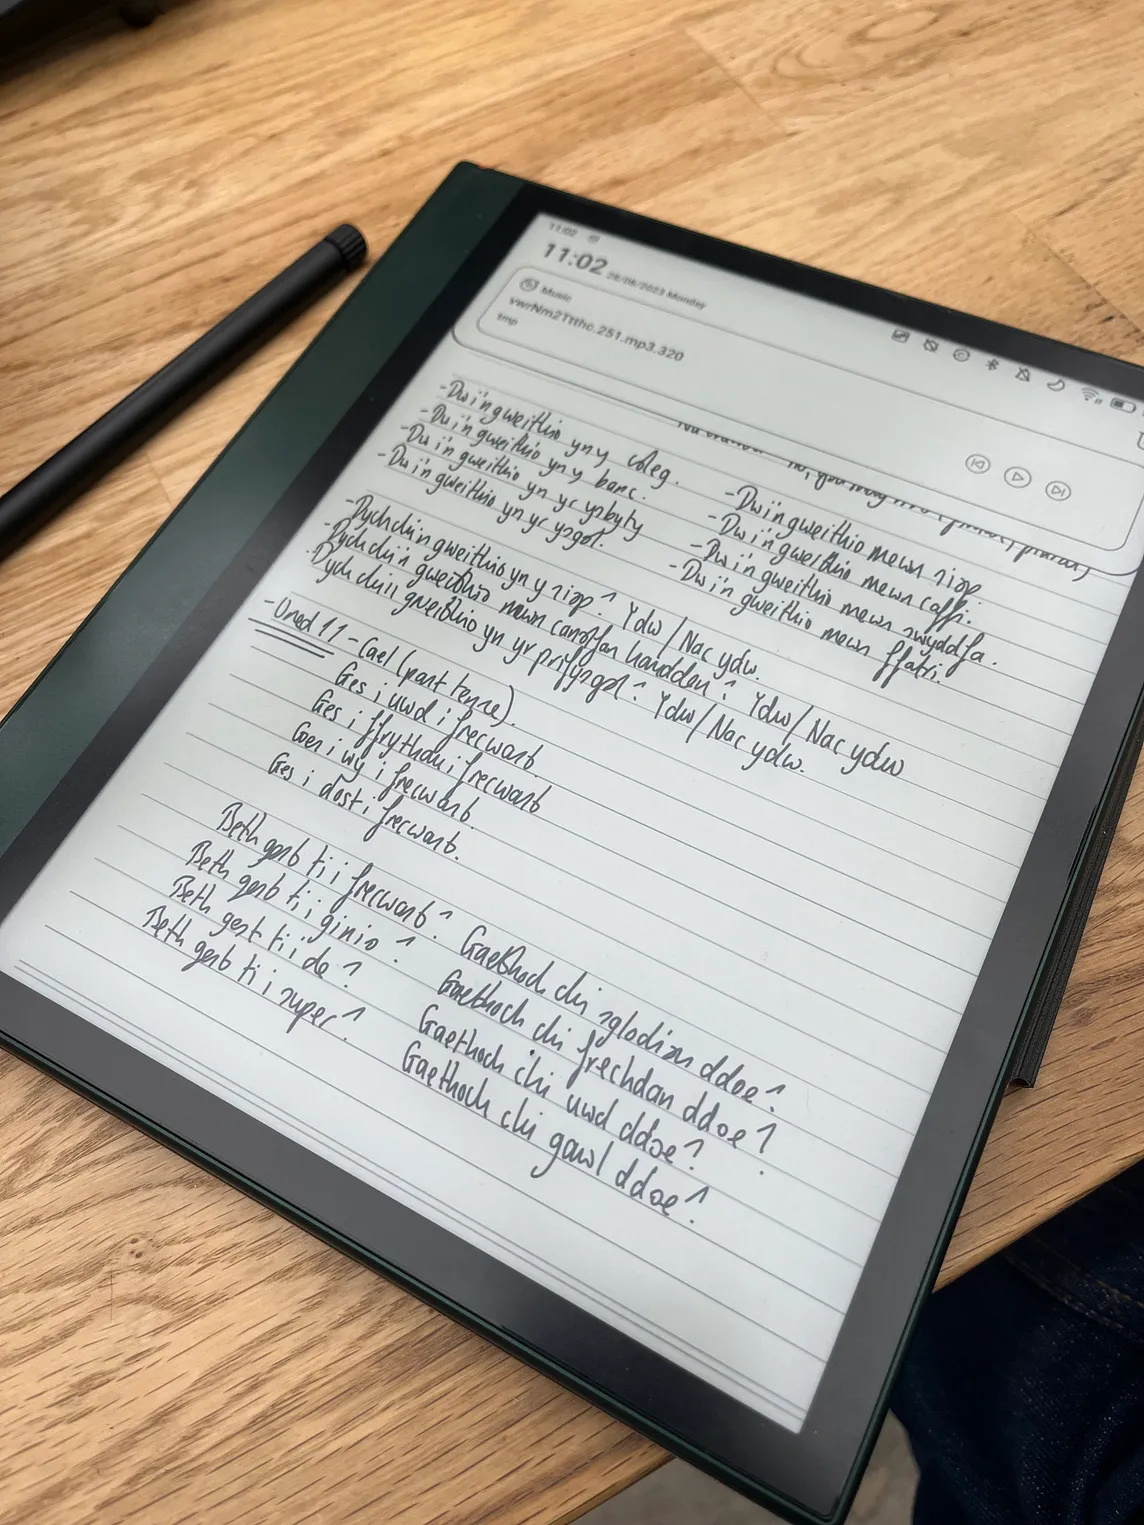 11:02
11:02 28/08/2023 Monday
Music
vwrNm2Ttthc.251.mp3.320
tmp
- Dw i'n gweithio yn y coleg.
- Dw i'n gweithio yn y banc.
- Dw i'n gweithio yn yr ysbyty
- Dw i'n gweithio yn yr ysgol.
- Dw i'n gweithio mewn siop.
- Dw i'n gweithio mewn caffi.
- Dw i'n gweithio mewn swyddfa.
- Dw i'n gweithio mewn ffatri.
- Dych chi'n gweithio yn y siop? Ydw / Nac ydw.
- Dych chi'n gweithio mewn canolfan hamdden? Ydw / Nac ydw
- Dych chi'n gweithio yn yr prifysgol? Ydw / Nac ydw.
- Uned 11 - Cael (past tense).
Ges i uwd i frecwast.
Ges i ffrwythau i frecwast
Ges i wy i frecwast.
Ges i dost i frecwast.
Beth gest ti i frecwast?
Beth gest ti i ginio?
Beth gest ti i de?
Beth gest ti i swper?
Gaethoch chi sglodion ddoe?
Gaethoch chi frechdan ddoe?
Gaethoch chi uwd ddoe?
Gaethoch chi gawl ddoe?